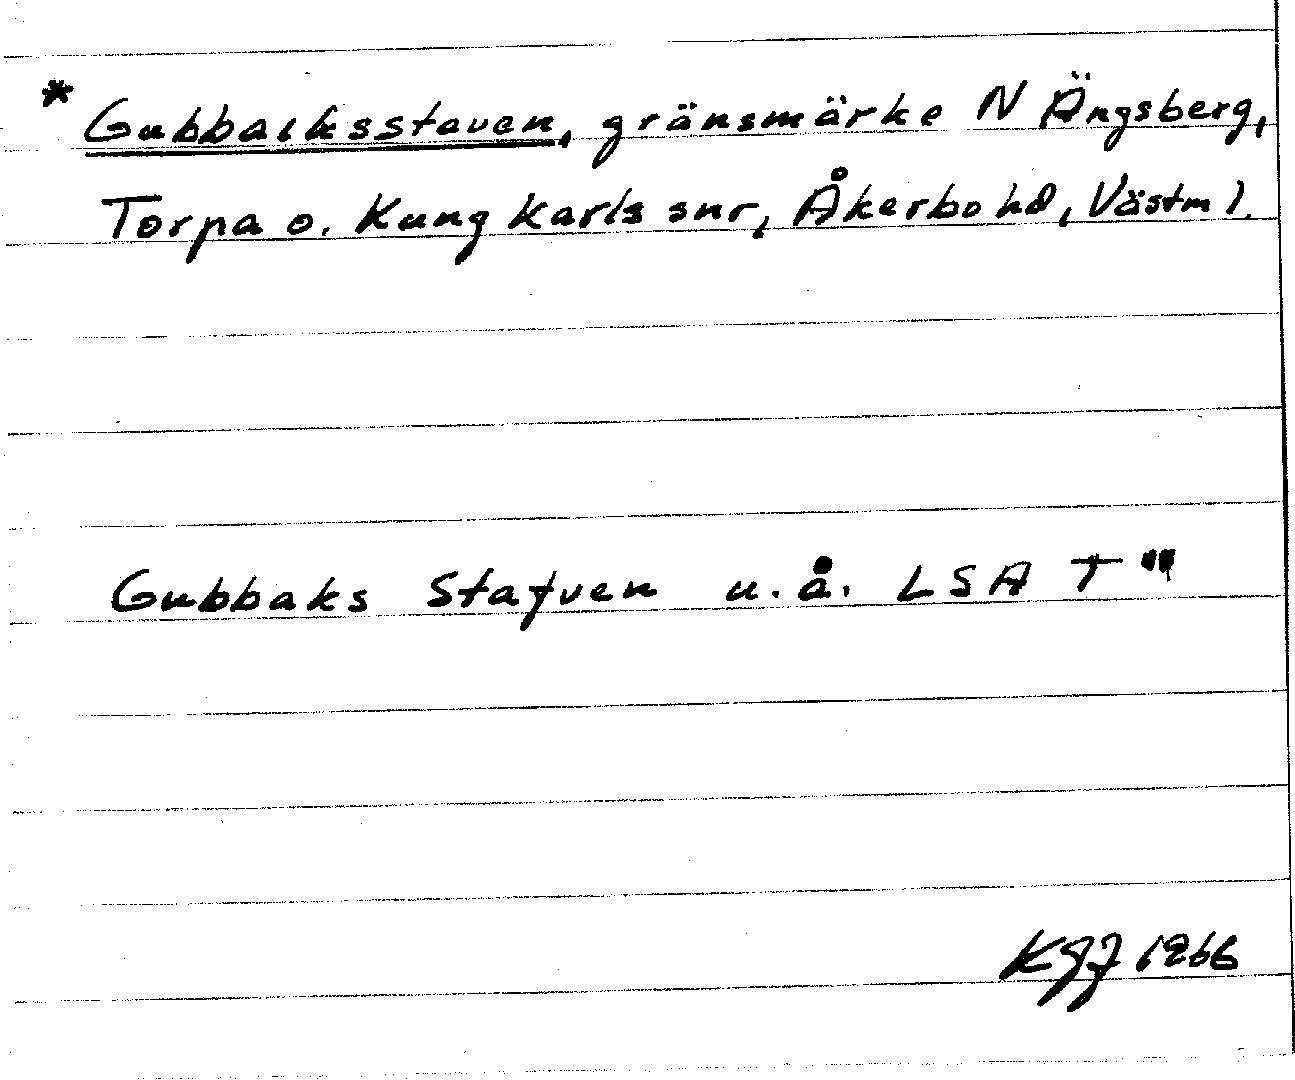 * Gubbacksstaven, gränsmärke N Ängsberg,
Torpa o. Kung Karls snr, Åkerbo hd, Västm l.
Gubbaks Stafven u.å. LSA T
KGJ 1966